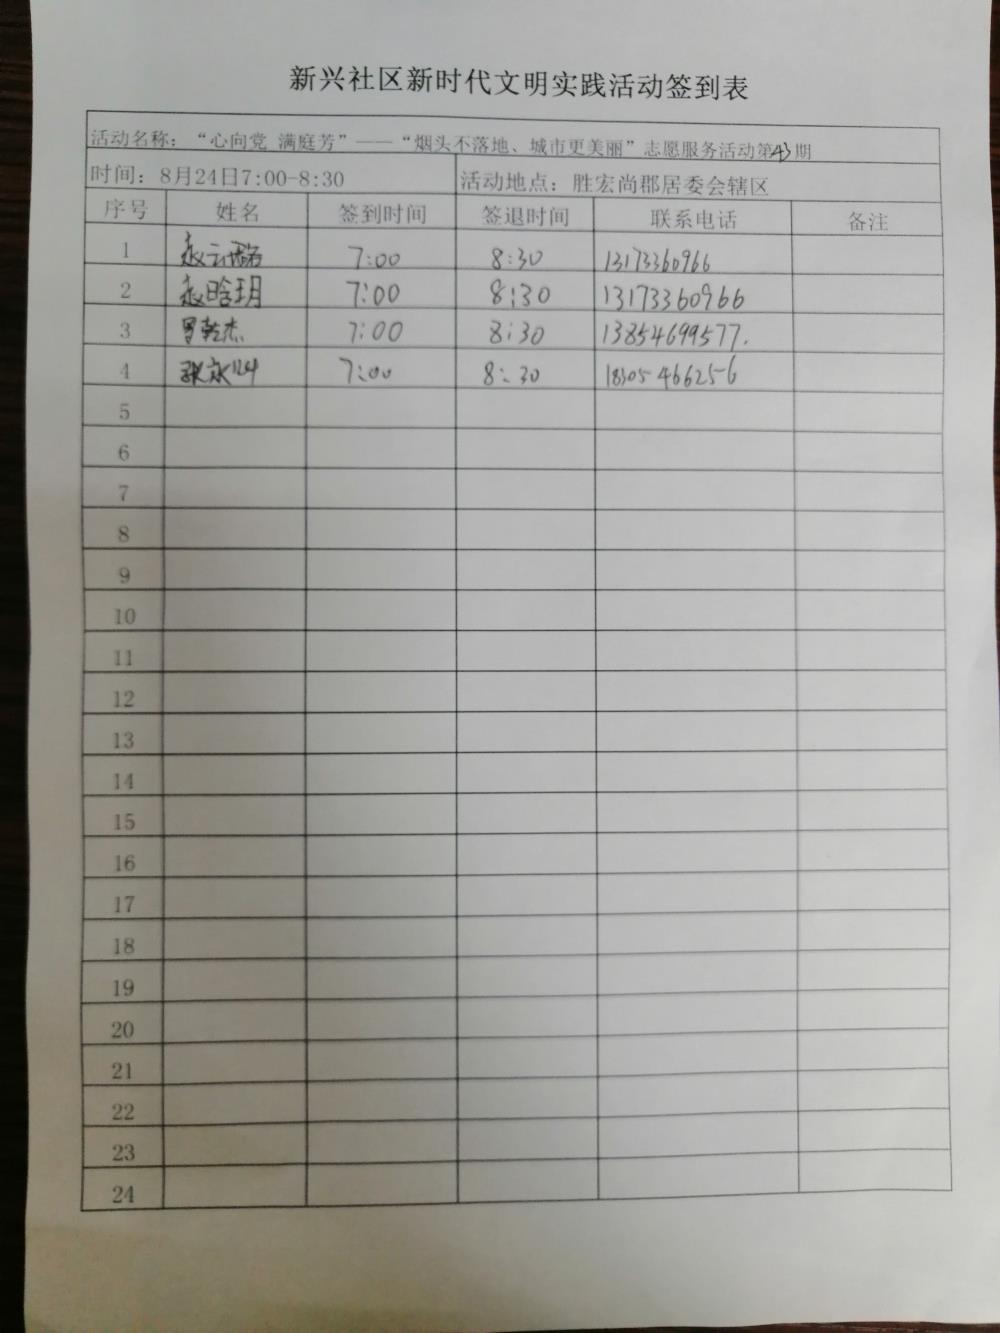 新兴社区新时代文明实践活动签到表
活动名称：“心向党 满庭芳”——“烟头不落地、城市更美丽”志愿服务活动第43期
时间：8月24日7:00-8:30 活动地点：胜宏尚郡居委会辖区
序号 姓名 签到时间 签退时间 联系电话 备注
1 赵 7:00 8:30 13173360966
2 赵晗玥 7:00 8:30 13173360966
3 乾杰 7:00 8:30 13854699577.
4 张 7:00 8:30 18305466256
5
6
7
8
9
10
11
12
13
14
15
16
17
18
19
20
21
22
23
24